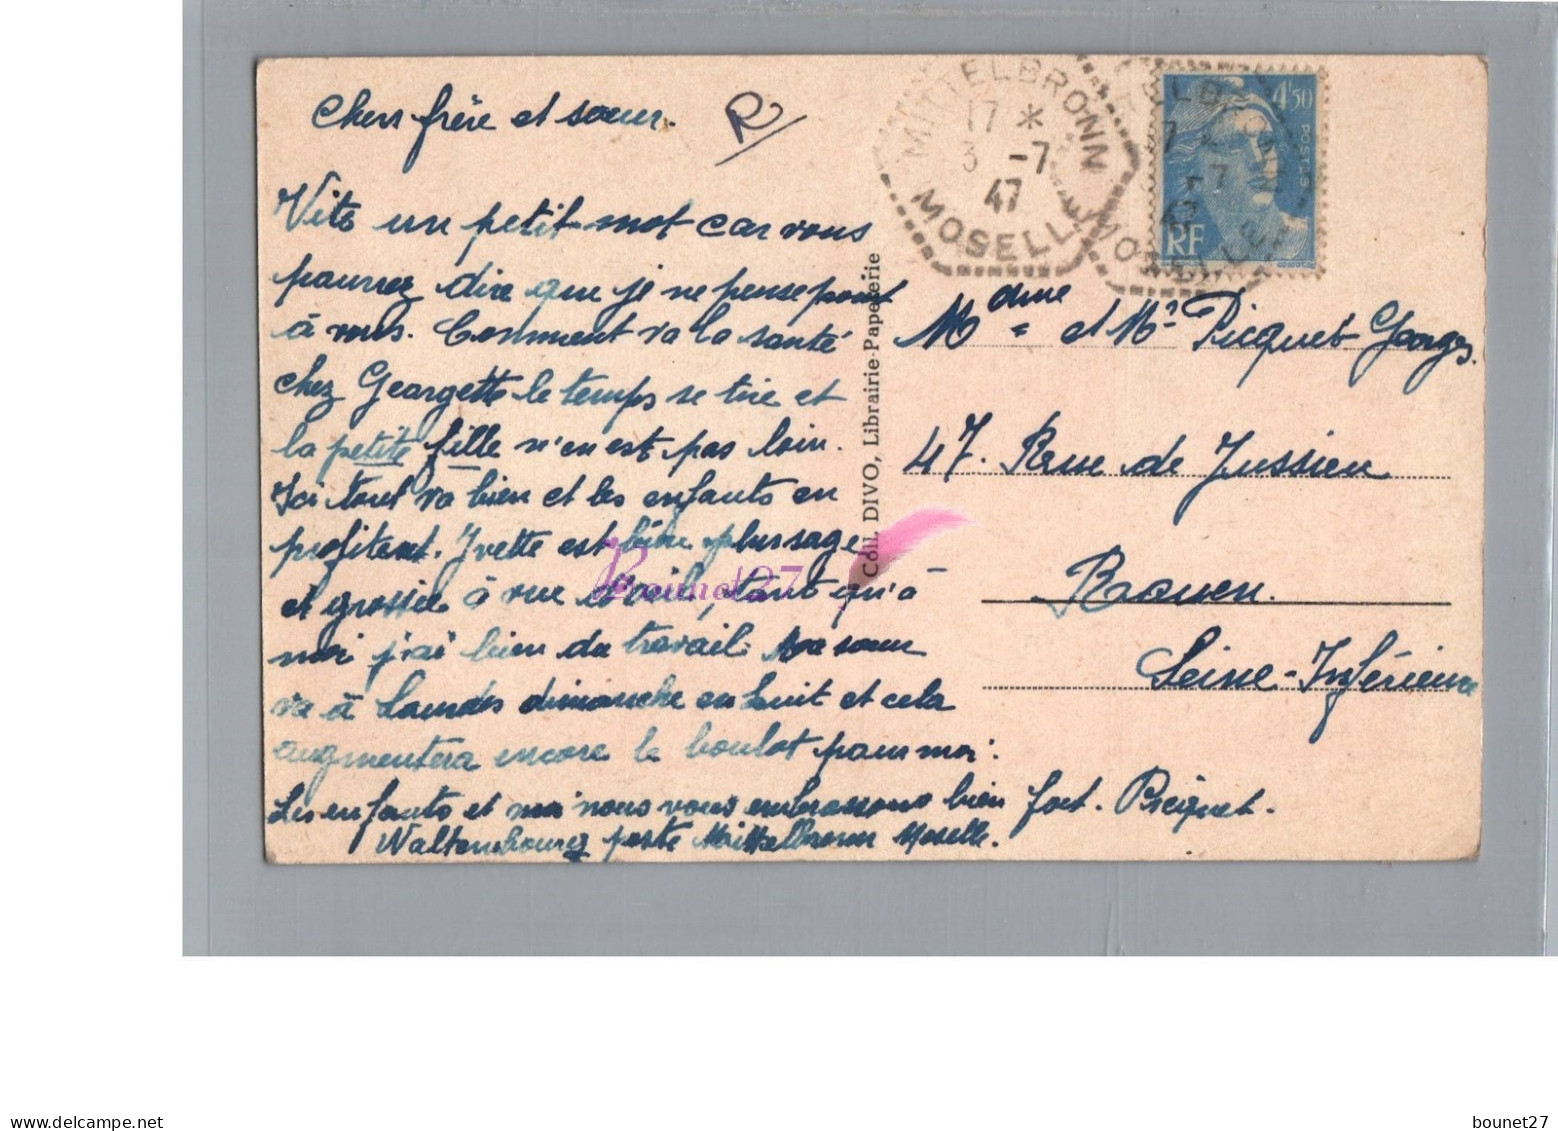 Chers frère et sœur.
R
Vite un petit mot car vous
pourrez dire que je ne pense point
à vous. Comment va la santé
chez Georgette le temps se tire et
la petite fille n'en est pas loin.
Ici tout va bien et les enfants en
profitent. Yvette est bien plus sage
et grossie à vue d'œil, tant qu'à
moi j'ai bien du travail. Ma sœur
va à Lourdes dimanche en huit et cela
augmentera encore le boulot pour moi.
Les enfants et moi nous vous embrassons bien fort. Picquet.
Waltembourg poste Mittelbronn Moselle.
Coll. DIVO, Librairie-Papeterie
MITTELBRONN
17 *
3 -7
47
MOSELLE
4F50
POSTES
RF
Mdme et Mr Picquet Georges
47. Rue de Jussieu
Rouen.
Seine-Inférieure
Bounet27
www.delcampe.net
bounet27